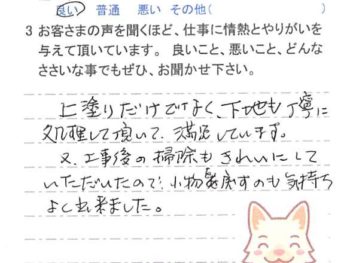 良い 普通 悪い その他( )
3 お客さまの声を聞くほど、仕事に情熱とやりがいを
与えて頂いています。 良いこと、悪いこと、どんな
ささいな事でもぜひ、お聞かせ下さい。
上塗りだけでなく、下地も丁寧に
処理して頂いて、満足しています。
又、工事後の掃除もきれいにして
いただいたので、小物戻すのも気持ち
よく出来ました。